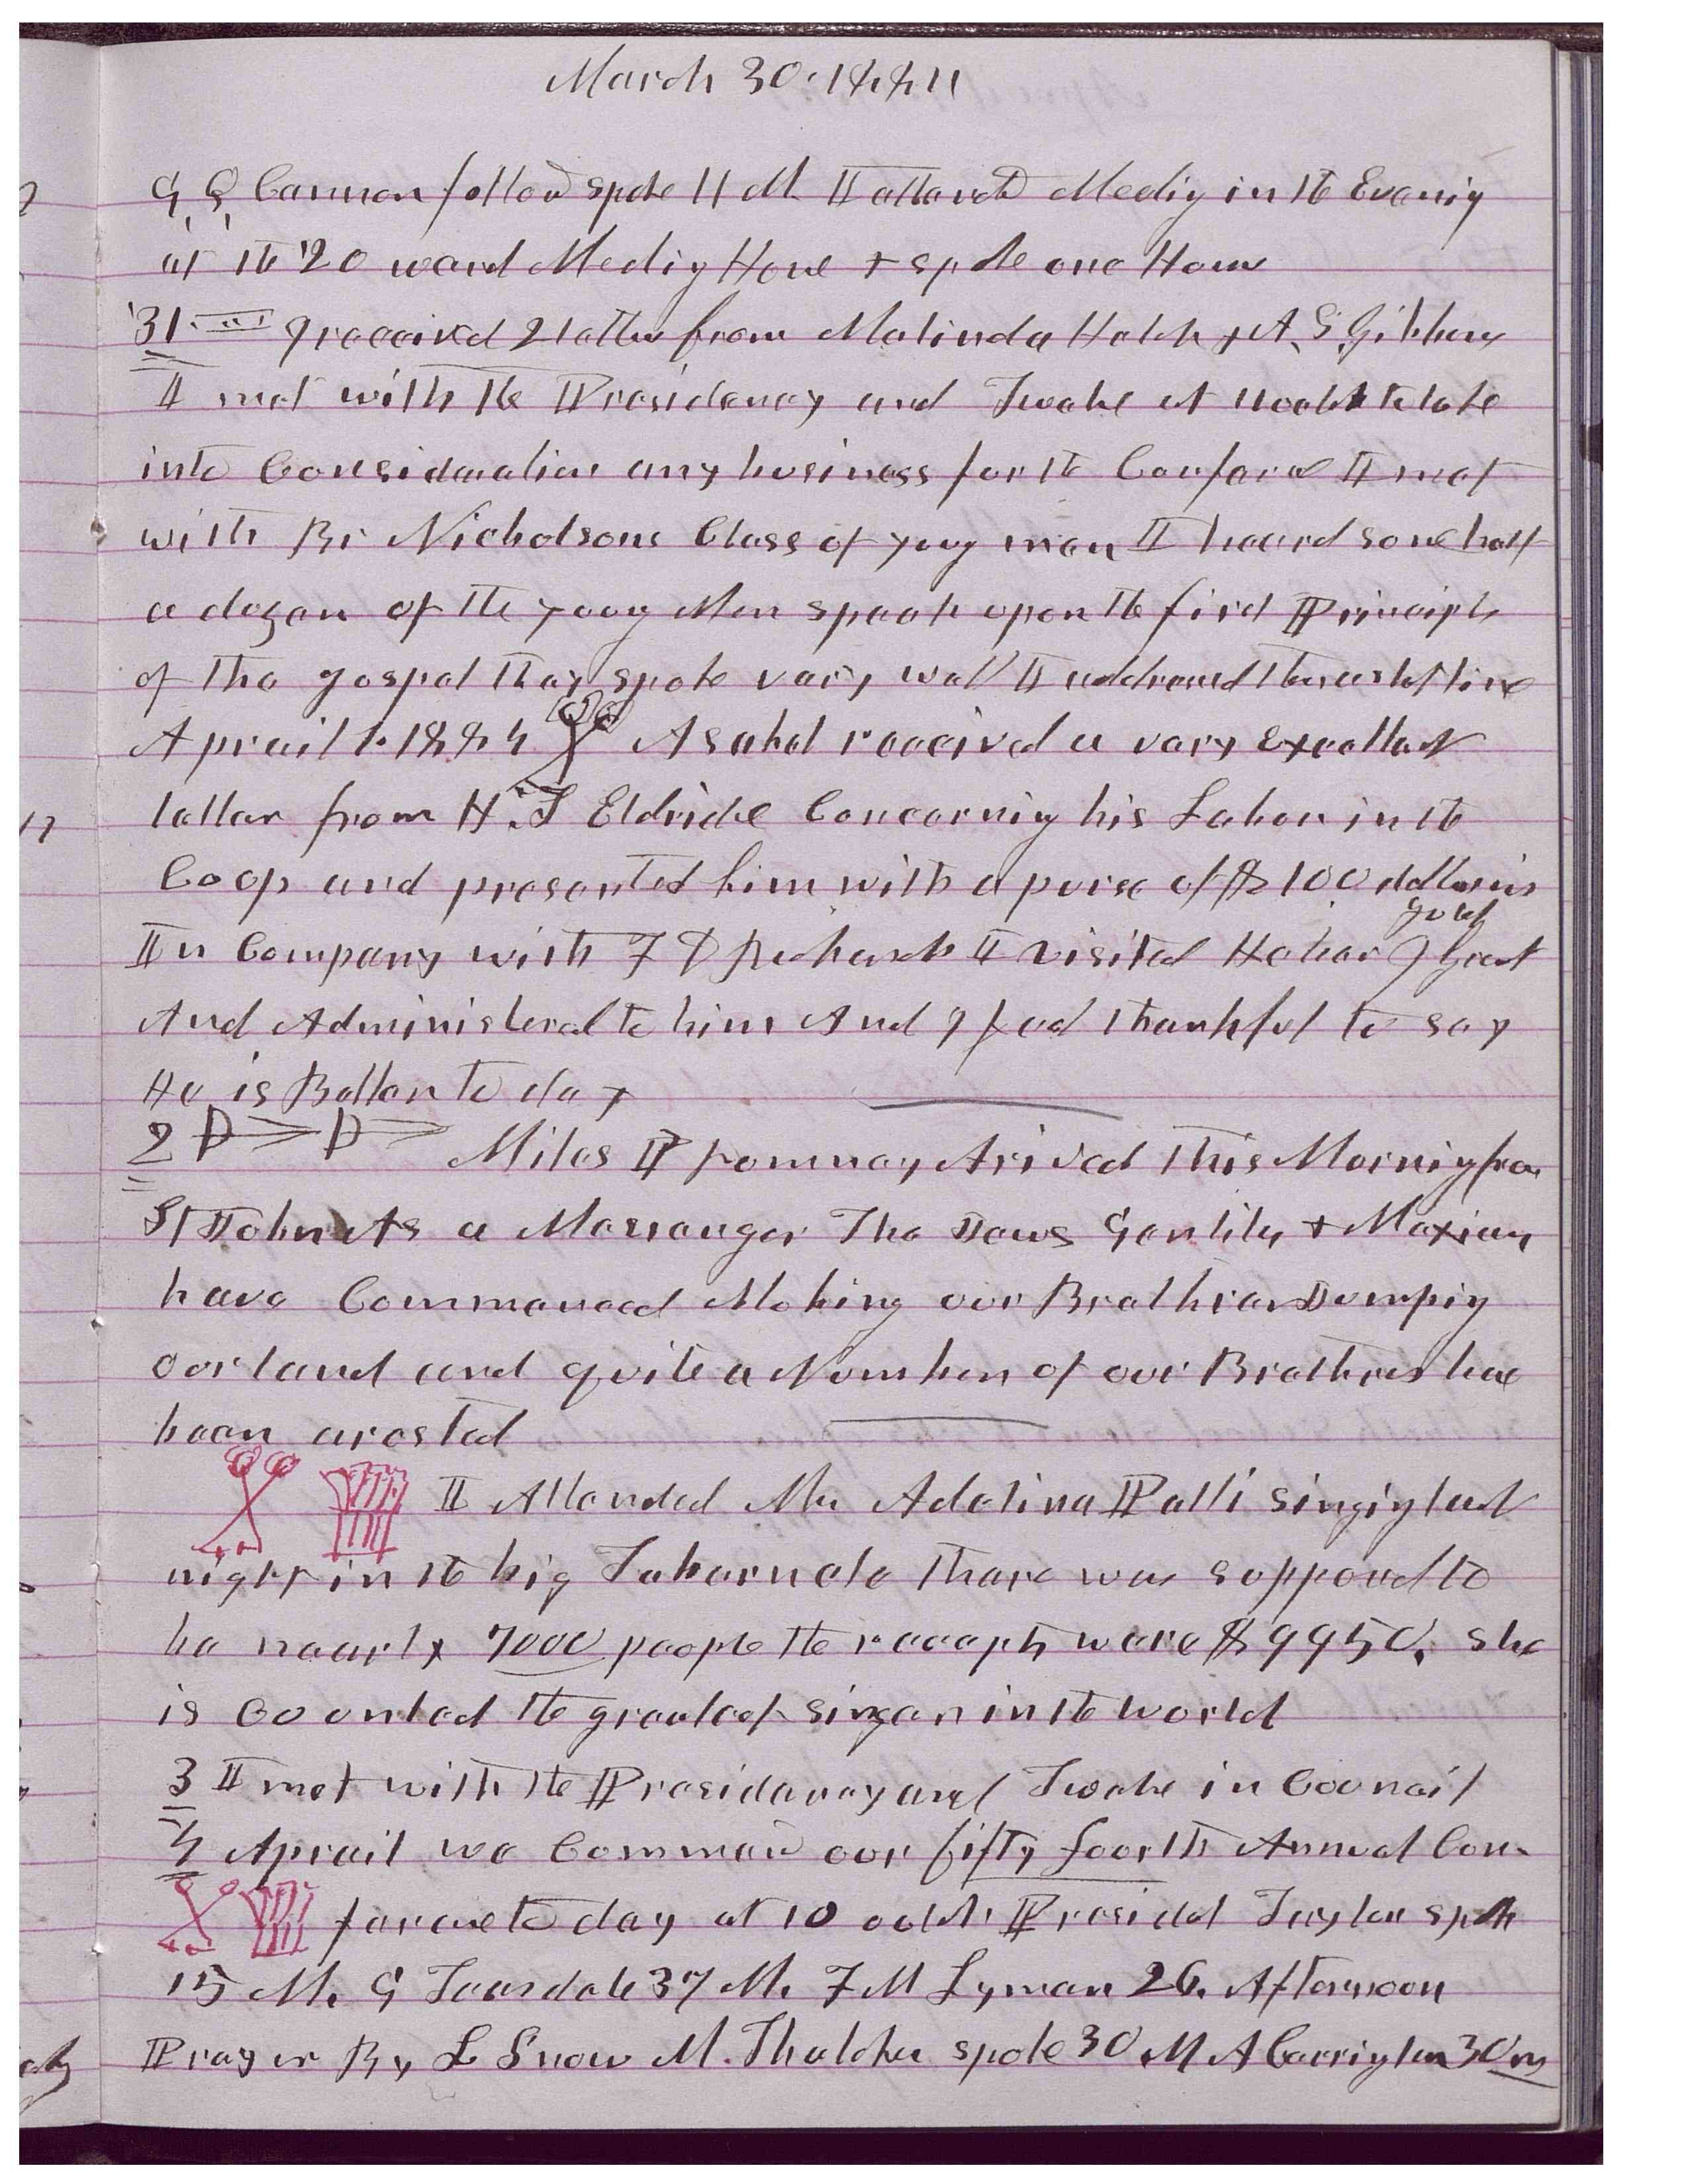 March 30. 1884
G, Q, Cannon follow spoke 11 M. I attended Meeting in the Evening
at the 20 ward Meeting House & spoke one Hour
31 I received 2 letters from Malinda Hatch & A, S, Gibbons
I met with the Presidency and Twelve at to take
into Consideration any business for the Conference I met
with Br Nicholsons Class of young men I heard some half
a dozen of the young Men speak upon the first Principles
of the gospel They spoke very well I addressed them a short time
Aprail 1. 1884 Asahel received a very Excellent
letter from H. S Eldridge Concerning his Labor in the
Coop and presented him with a purse of $100 dollars in
gold
In Company with F D Richards I visited Heber J Grant
And Administered to him And I feel thankful to say
He is Better to day
2 Miles P Romney Arived This Morning from
St Johns As a Messenger The Jews Gentiles & Mexicans
have Commenced Mobing our Brethren Jumping
our land and quite a Number of our Brethren have
been arested
I Attended Mrs Adelina Patti singing last
night in the big Tabernacle there was supposed to
be nearly 7000 people the receepts were $9950. She
is Counted the greatest singer in the world
3 I met with the Presidency and Twelve in Council
4 Aprail we Commenced our fifty fourth Annual Con-
ference to day at 10 oclok President Taylor spoke
15 M. G Teasdale 37 M. F M Lyman 26. Afternoon
Prayer By L Snow M. Thatcher spoke 30 M A Carrington 30 m